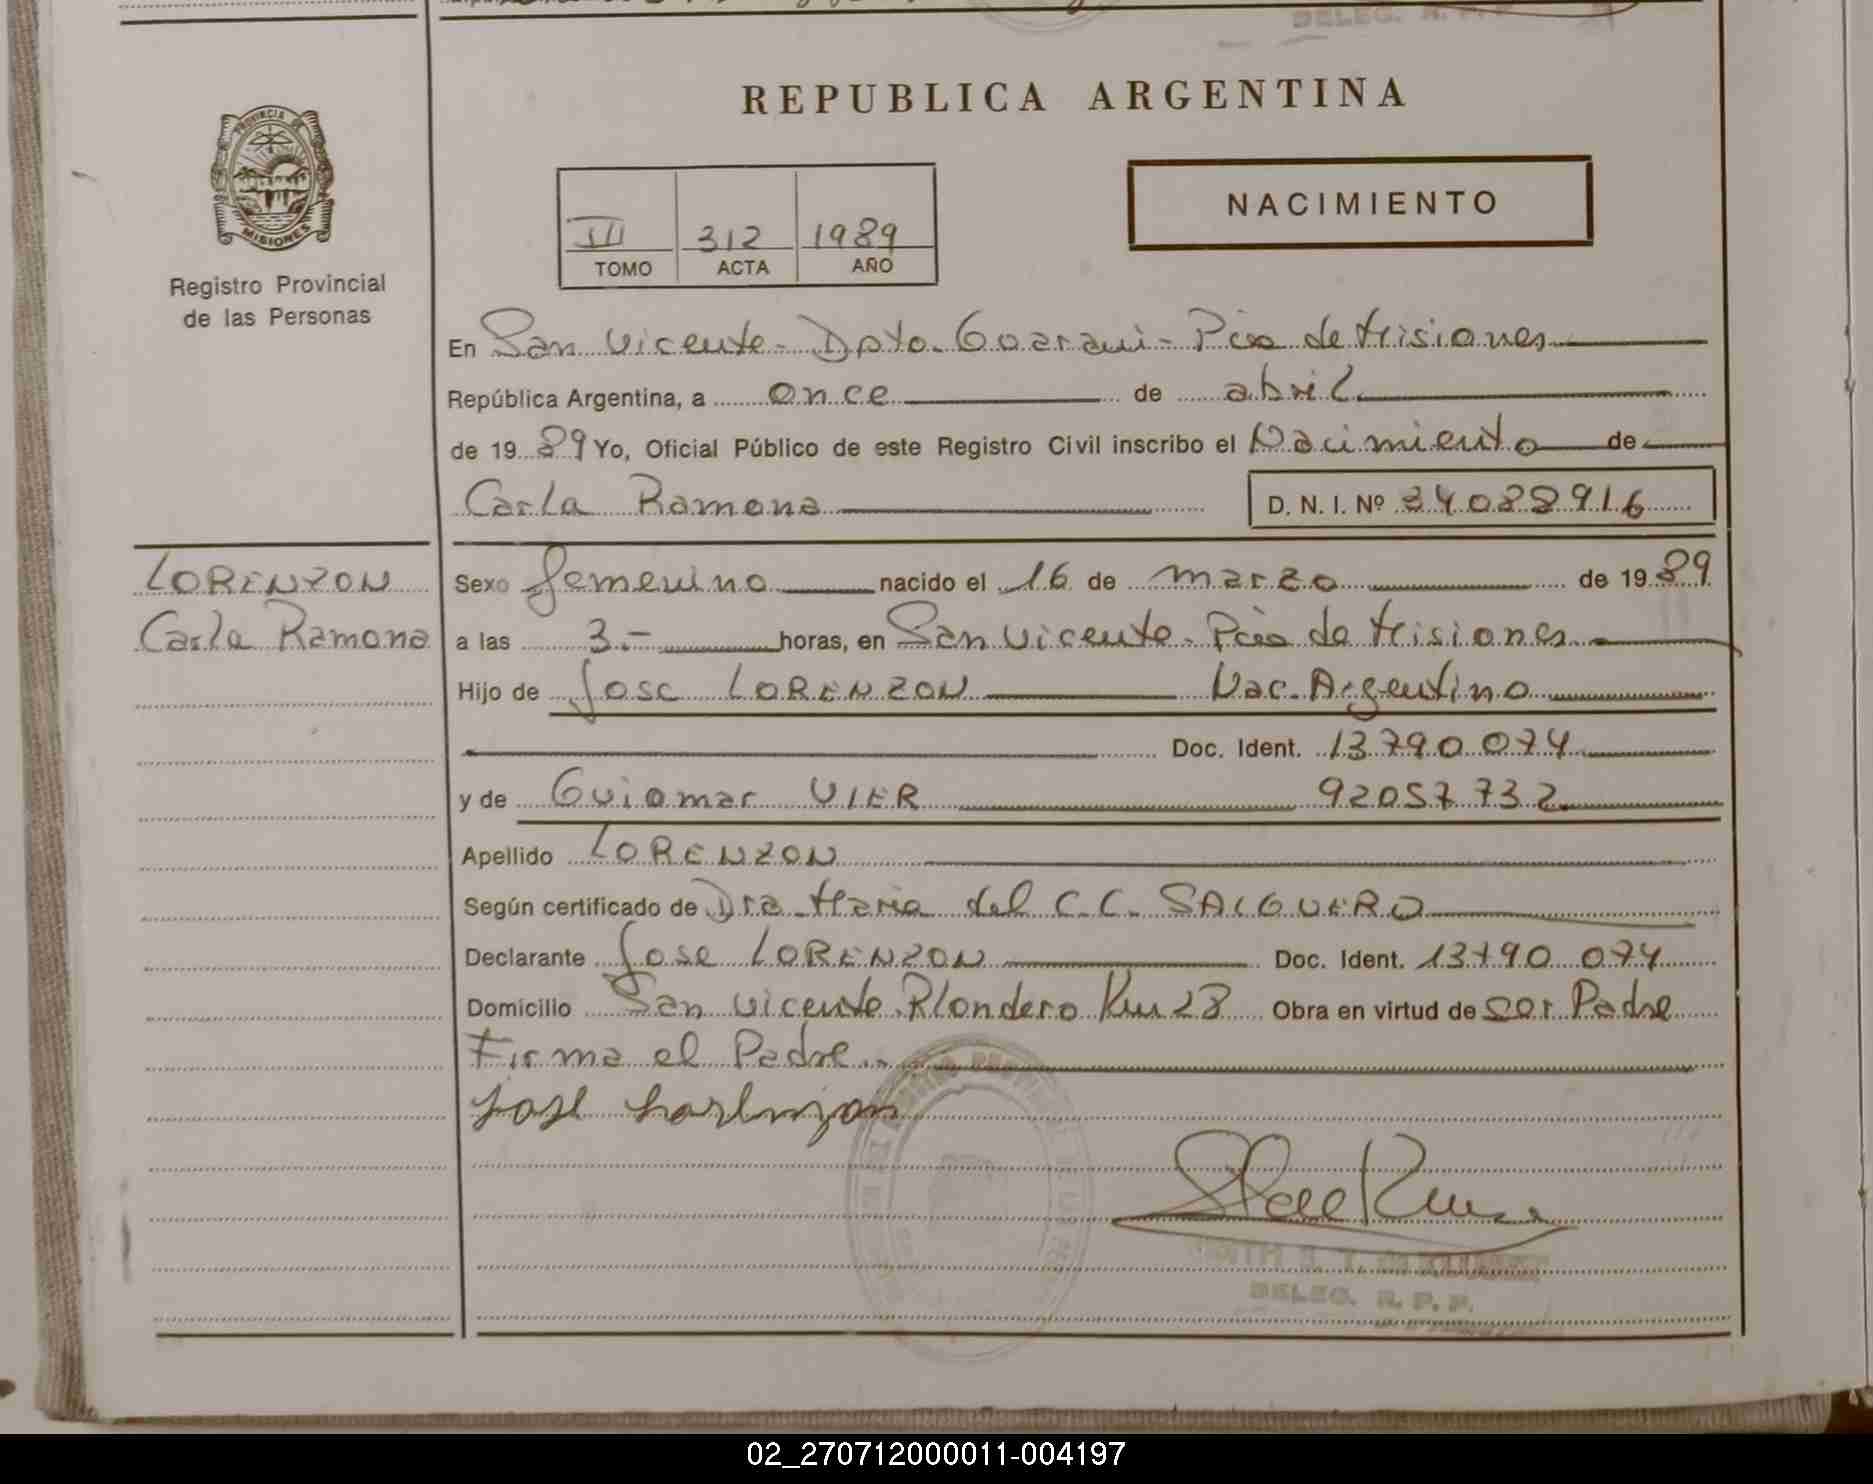 DELEG. R. P. P.
REPUBLICA ARGENTINA
PROVINCIA DE
MISIONES
Registro Provincial
de las Personas
NACIMIENTO
III 312 1989
TOMO ACTA AÑO
En San Vicente - Dpto. Guarani - Pcia de Misiones
República Argentina, a once de abril
de 19 89 Yo, Oficial Público de este Registro Civil inscribo el Nacimiento de
Carla Ramona D. N. I. Nº 34088916
LORENZON
Carla Ramona
Sexo femenino nacido el 16 de marzo de 19 89
a las 3.- horas, en San Vicente - Pcia de Misiones
Hijo de Jose LORENZON Nac. Argentino
Doc. Ident. 13790074
y de Guiomar VIER 92057732
Apellido LORENZON
Según certificado de Dra Maria del C.C. SALGUERO
Declarante Jose LORENZON Doc. Ident. 13790 074
Domicilio San Vicente Rlondero Km 28 Obra en virtud de ser Padre
Firma el Padre.-
Jose Lorenzon
DELEG. R. P. P.
02_270712000011-004197